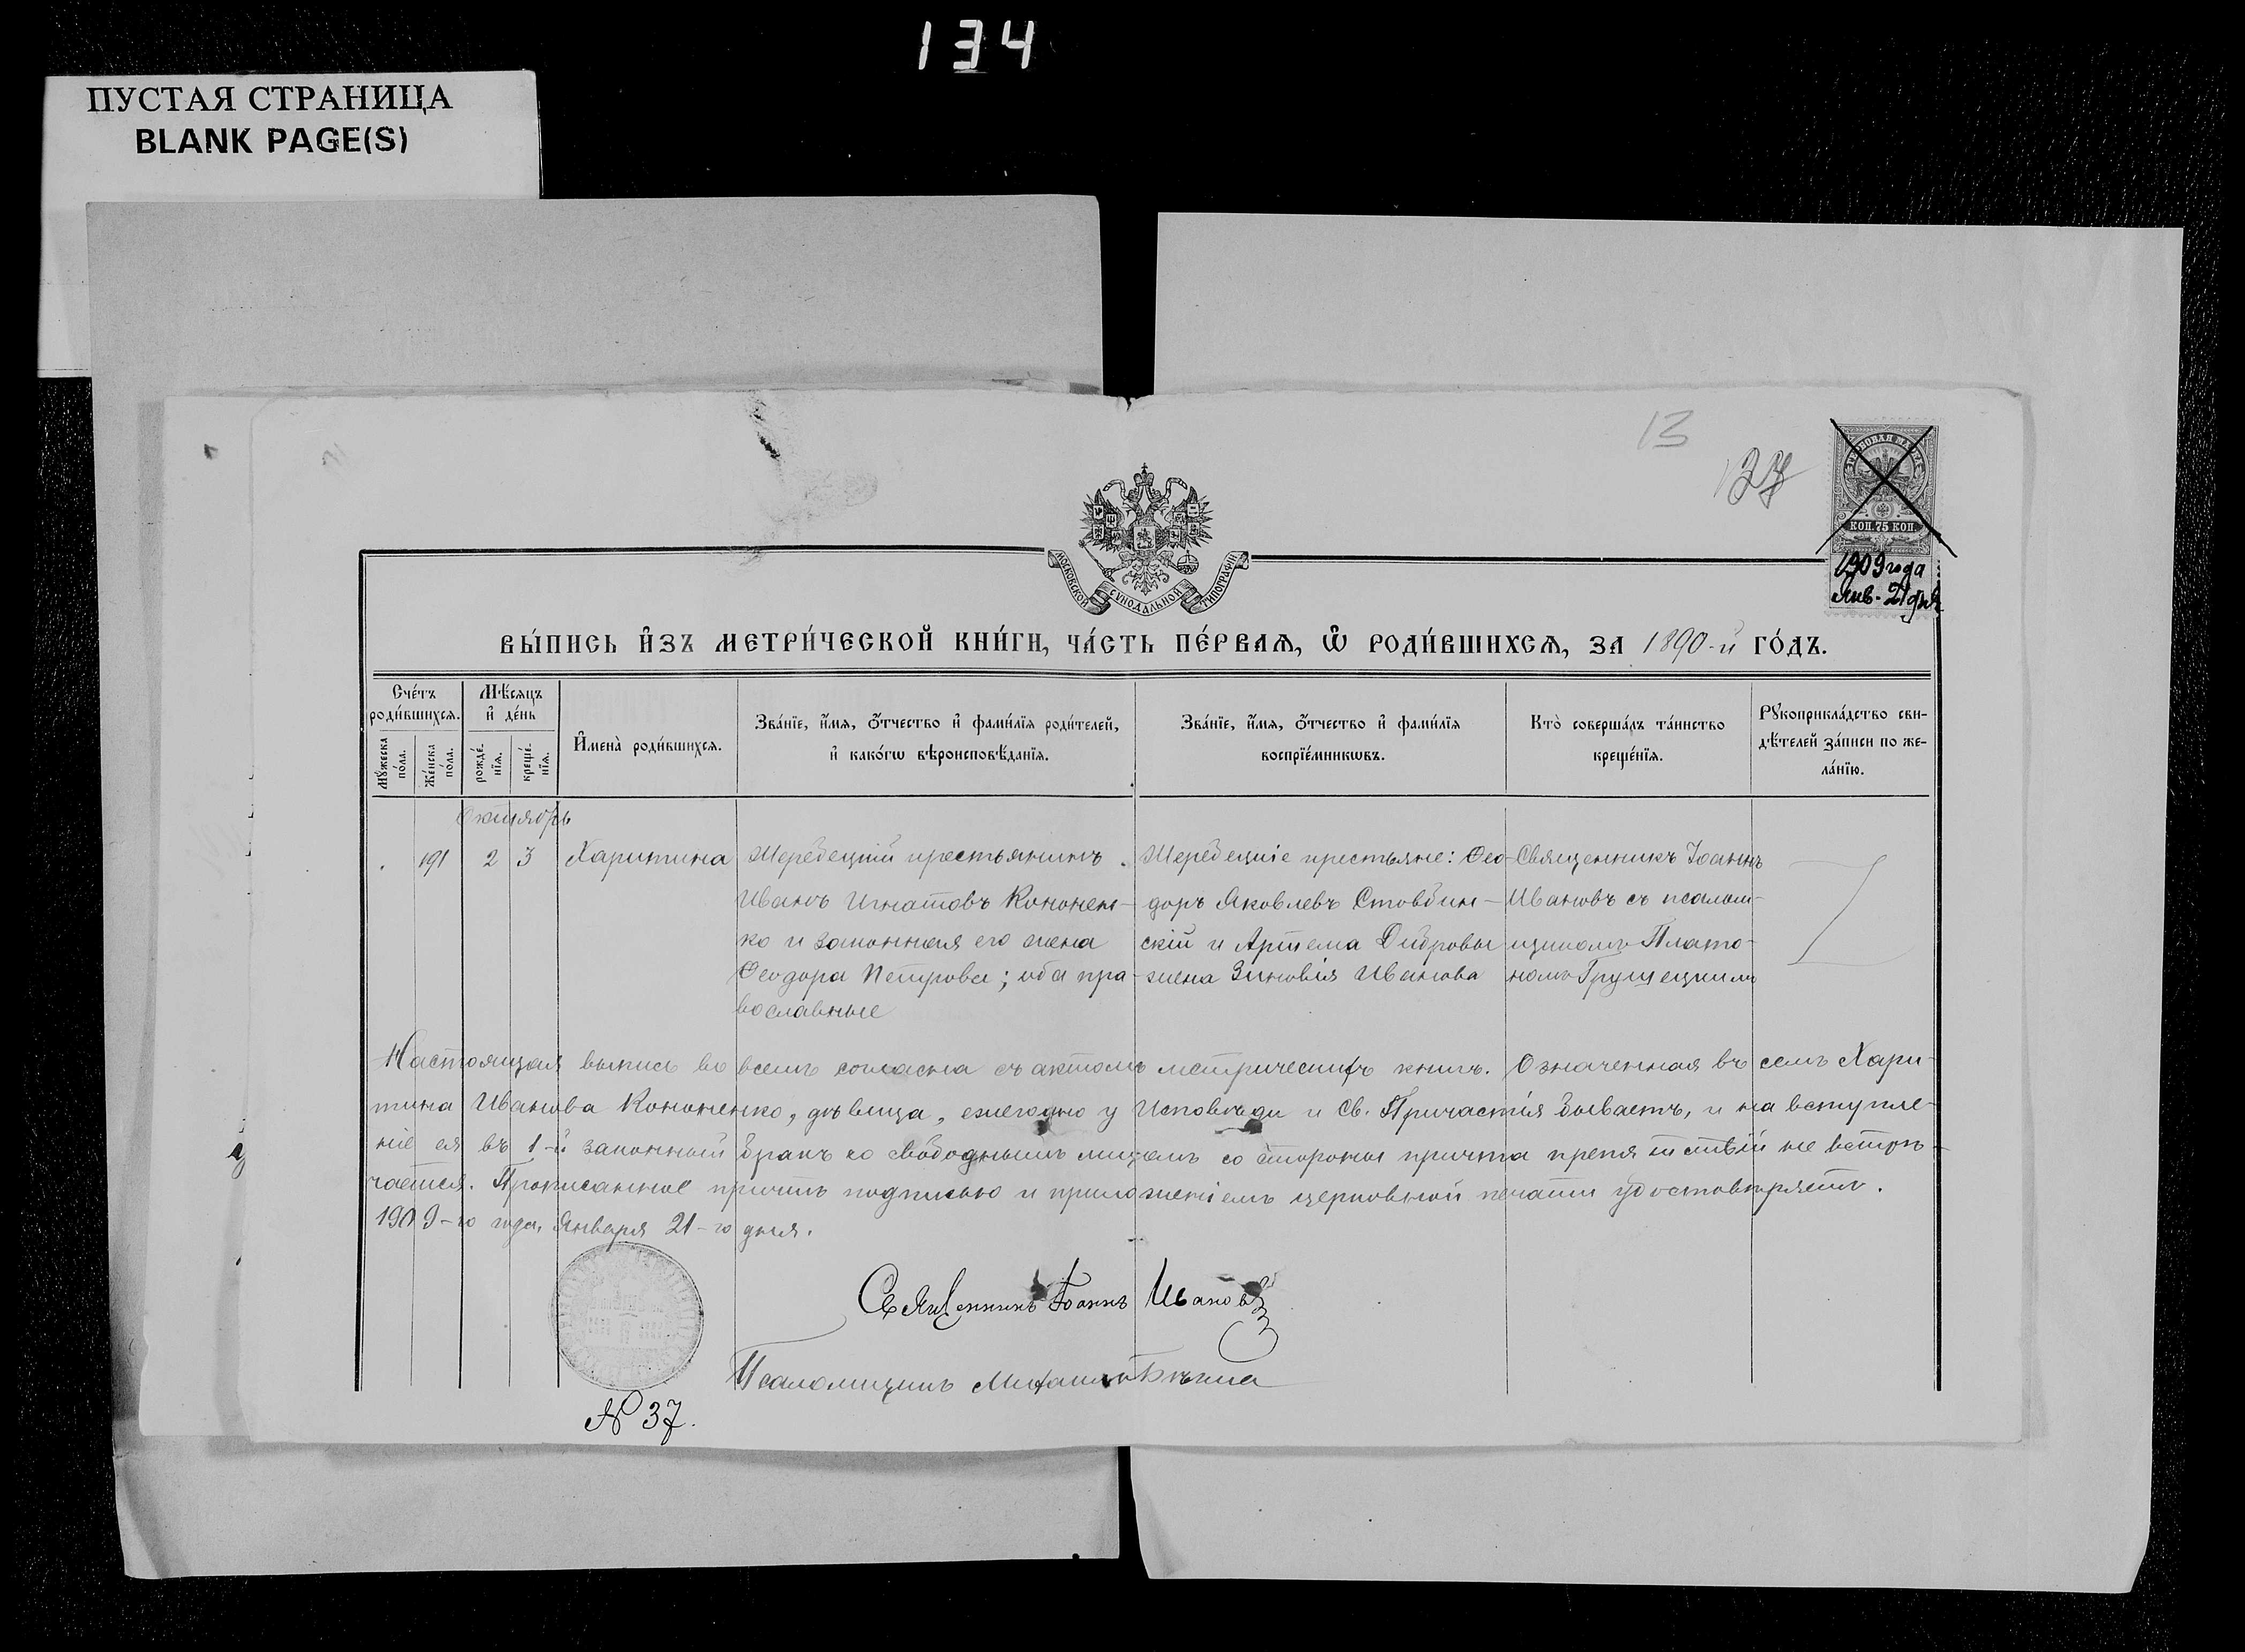 134
ПУСТАЯ СТРАНИЦА
BLANK PAGE(S)
13
127
ГЕРБОВАЯ МАРКА
КОП. 75 КОП.
1909 года
Янв. 21 дня
МОСКОВСКОЙ СѴНОДАЛЬНОЙ ТИПОГРАФІИ
ВЫ́ПИСЬ И҆ЗЪ МЕТРИ́ЧЕСКОЙ КНИ́ГИ, ЧА́СТЬ ПЕ́РВАѦ, Ѽ РОДИ́ВШИХСѦ, ЗА 1890-й ГО́ДЪ.
Сче́тъ роди́вшихсѧ.
Мꙋ́жеска по́ла.
Же́нска по́ла.
Мѣ́сѧцъ и҆ де́нь
рожде́нїѧ.
креще́нїѧ.
И҆мена̀ роди́вшихсѧ.
Зва́нїе, и҆́мѧ, ѻ҆́тчество и҆ фами́лїѧ роди́телей,
и҆ како́гѡ вѣроисповѣ́данїѧ.
Зва́нїе, и҆́мѧ, ѻ҆́тчество и҆ фами́лїѧ
воспрїе́мникѡвъ.
Кто̀ соверша́лъ та́инство
креще́нїѧ.
Рꙋкоприкла́дство сви-
дѣ́телей за́писи по же-
ла́нїю.
Октябрь
191 2 3 Харитина
Жеребецкій крестьянинъ
Иванъ Игнатовъ Кононен-
ко и законная его жена
Ѳеодора Петрова; оба пра-
вославные
Жеребецкіе крестьяне: Ѳео-
доръ Яковлевъ Стовбин-
скій и Артема Дибровы
жена Зиновія Иванова
Священникъ Іоаннъ
Ивановъ съ псалом-
щикомъ Плато-
номъ Грушецкимъ
Настоящая выпись во всемъ согласна съ актомъ метрическихъ книгъ. Означенная въ семъ Хари-
тина Иванова Кононенко, дѣвица, ежегодно у Исповѣди и Св. Причастія бываетъ, и на вступле-
ніе ея въ 1-й законный бракъ со свободнымъ лицемъ со стороны причта препятствій не встрѣ-
чается. Прописанное причтъ подписью и приложеніемъ церковной печати удостовѣряетъ.
1909-го года, Января 21-го дня.
Священникъ Іоаннъ Ивановъ
Псаломщикъ Михаилъ
№ 37.